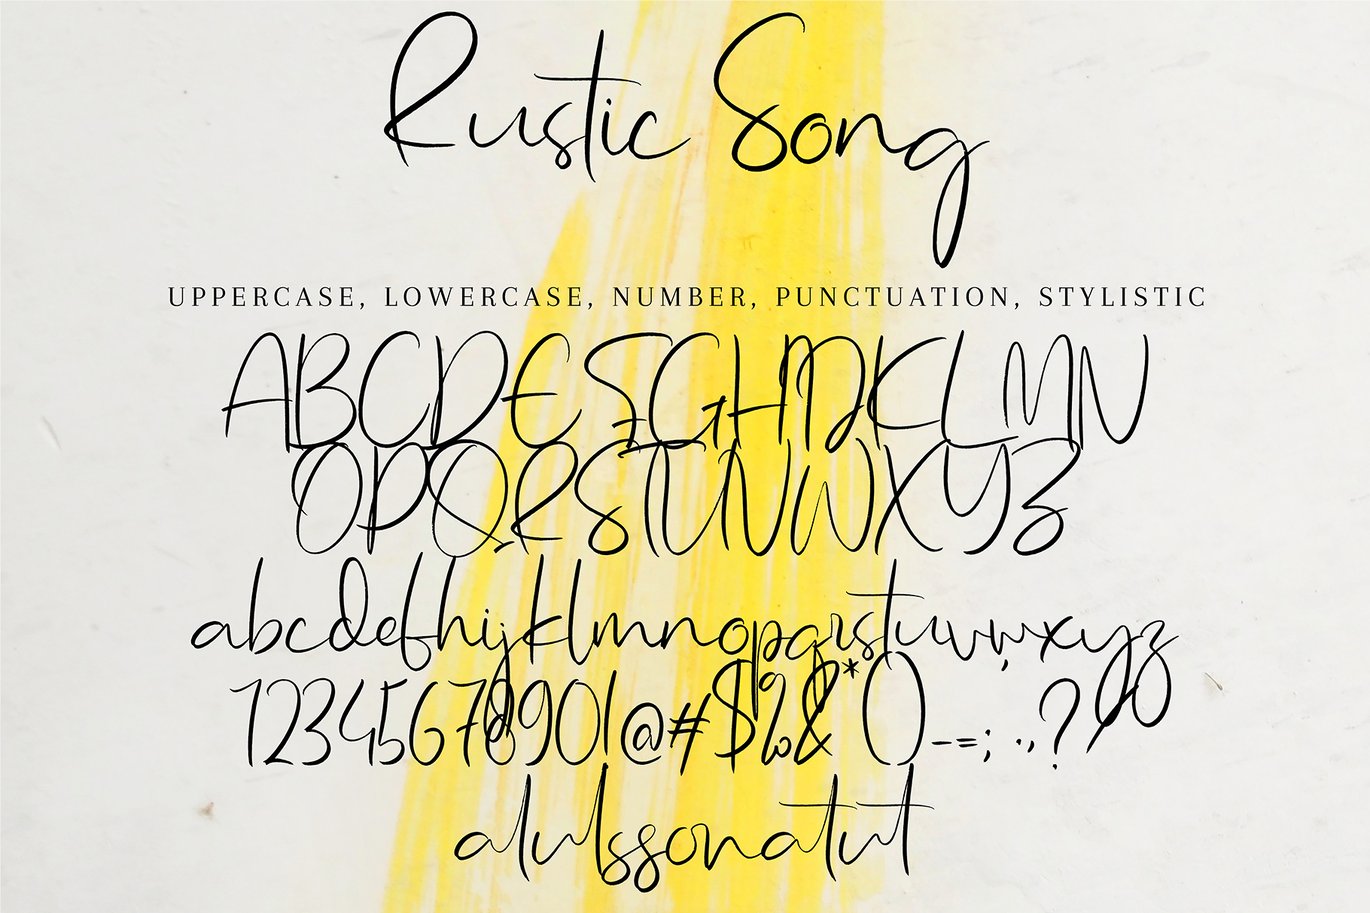 Rustic Song
UPPERCASE, LOWERCASE, NUMBER, PUNCTUATION, STYLISTIC
ABCDEFGHIJKLMN
OPQRSTUVWXYZ
abcdefhijklmnopqrstuvwxyz
1234567890!@#$%&*()-=;:.,?